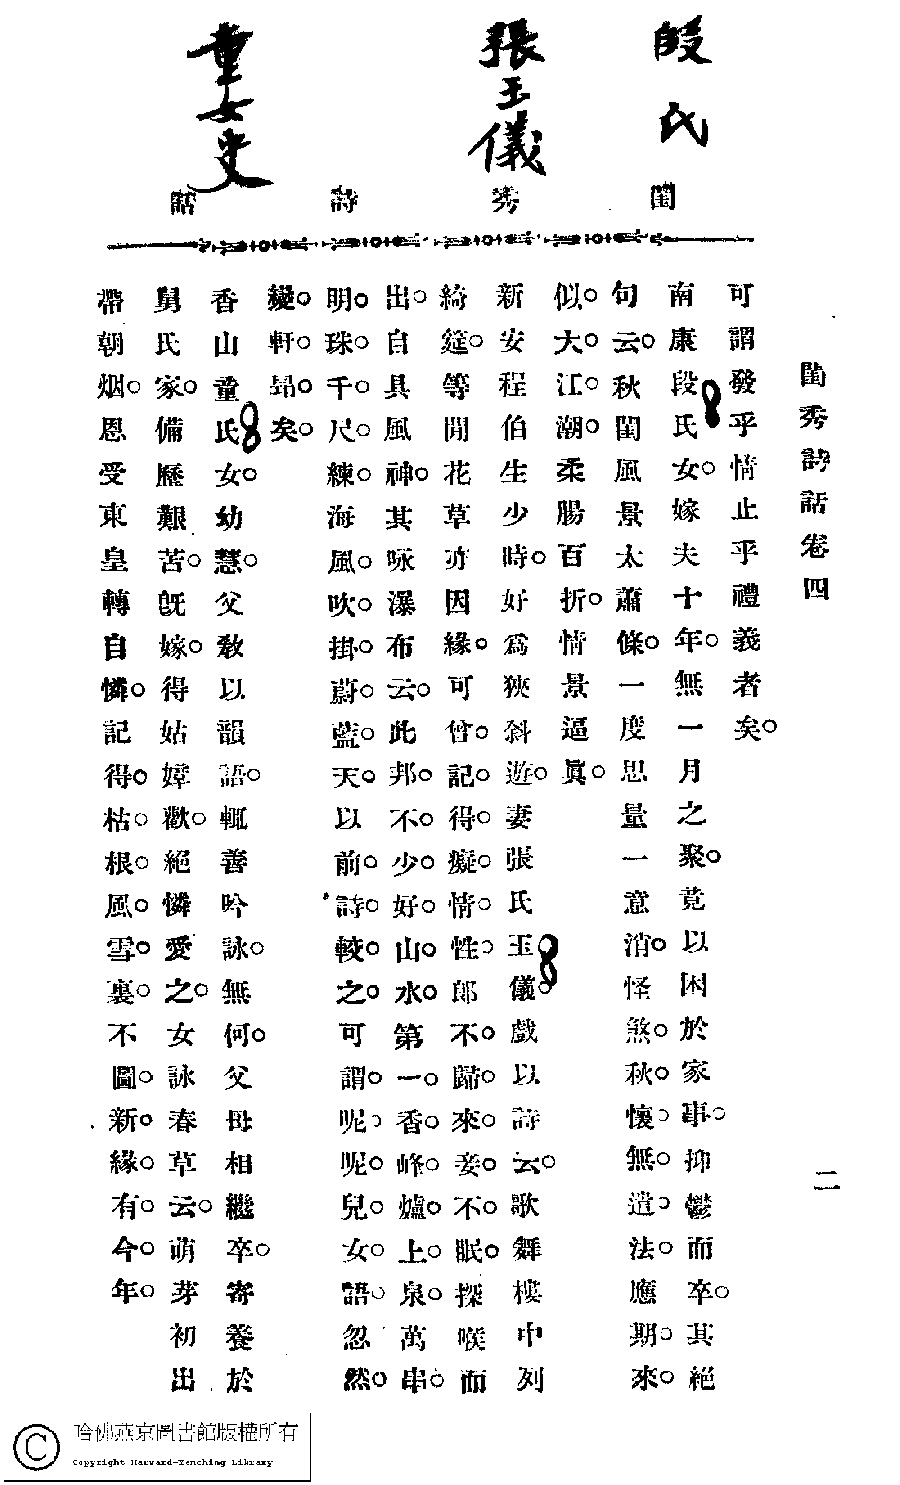 段氏
張玉儀
童女史
閨秀詩話
閨秀詩話卷四
二
可謂發乎情止乎禮義者矣。
南康段氏女。嫁夫十年。無一月之聚。竟以困於家事。抑鬱而卒。其絕
句云。秋閨風景太蕭條。一度思量一意消。怪煞。秋。懷。無。遣。法。應期。來。
似。大。江。潮。柔腸百折。情景逼眞。
新安程伯生少時。好爲狹斜遊。妻張氏玉儀。戲以詩云。歌舞樓中列
綺筵。等閒花草亦因緣。可曾。記。得。癡。情。性。郎不。歸。來。妾。不。眠。探喉而
出。自具風神。其咏瀑布云。此邦。不。少。好。山。水。第一。香。峰。爐。上。泉。萬串。
明。珠。千。尺。練。海風。吹。掛。蔚。藍。天。以前。詩。較。之。可謂。呢。呢。兒。女。語。忽然。
變。軒。昂。矣。
香山童氏女。幼慧。父敎以韻語。輒善吟詠。無何。父母相繼卒。寄養於
舅氏家。備歷艱苦。旣嫁。得姑嫜歡。絕憐愛之。女詠春草云。萌芽初出
帶朝烟。恩受東皇轉自憐。記得。枯。根。風。雪。裏。不圖。新。緣。有。今。年。
哈佛燕京圖書館版權所有
Copyright Harvard-Yenching Library